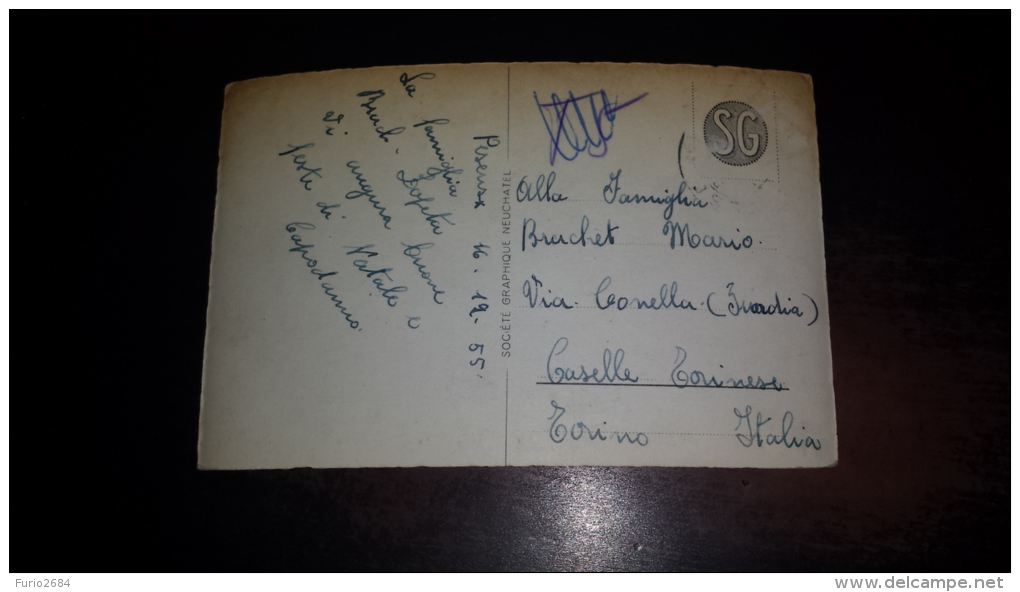 16. 12. 55.
La famiglia
Vi augura buone
feste di Natale e
Capodanno.
SOCIÉTÉ GRAPHIQUE NEUCHATEL
SG
Alla Famiglia
Bruchet Mario.
Via. Conella. (        )
Caselle Torinese
Torino Italia
Furio2684
www.delcampe.net